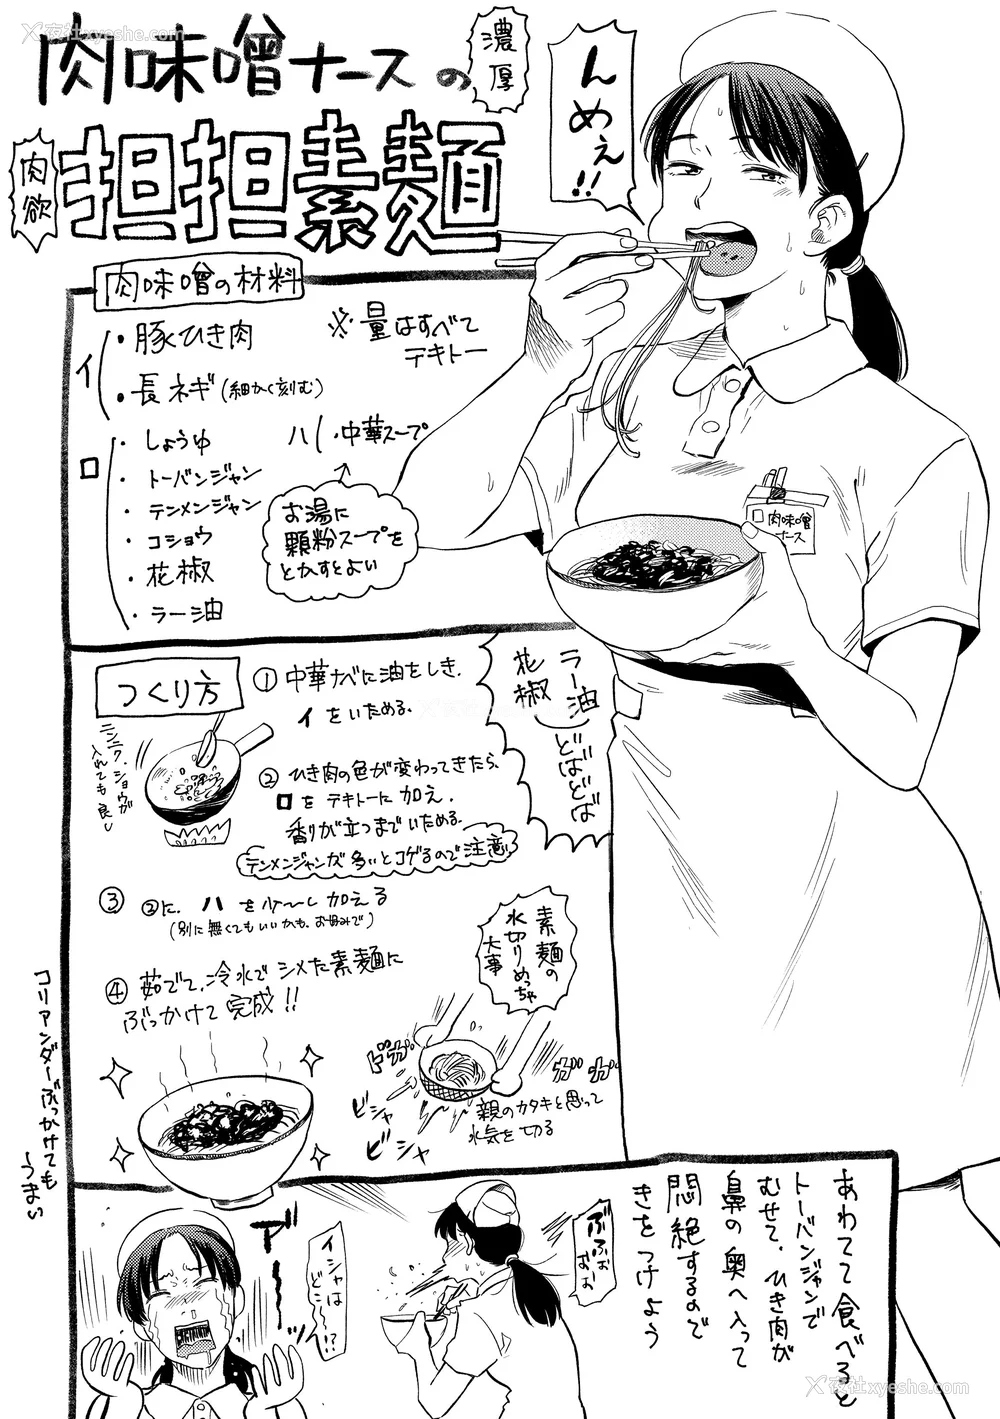 肉味噌ナースの
濃厚
肉欲
担担素麺
んめぇ!!
肉味噌の材料
イ
・豚ひき肉
・長ネギ(細かく刻む)
※量はすべて
テキトー
ロ
・しょうゆ
・トーバンジャン
・テンメンジャン
・コショウ
・花椒
・ラー油
ハ ・中華スープ
お湯に
顆粒スープを
とかすとよい
肉味噌
ナース
つくり方
①中華ナベに油をしき、
イをいためる。
ニンニク、ショウガ
入れても良し
②ひき肉の色が変わってきたら、
ロをテキトーに加え、
香りが立つまでいためる。
テンメンジャンが多いとコゲるので注意
③ ②に、ハを少〜し加える
(別に無くてもいいかも、お好みで)
④茹でて、冷水でシメた素麺に
ぶっかけて完成!!
ラー油
花椒
どばどば
素麺の
水切りめっちゃ
大事
ドガ
ガガ
ビシャ
ビシャ
親のカタキと思って
水気を切る
コリアンダーぶっかけても
〜うまい
あわてて食べると
トーバンジャンで
むせて、ひき肉が
鼻の奥へ入って
悶絶するので
きをつけよう
ぶふぉ
ぉぉ
イシャは
どこ〜!?
アーッ
夜社xyeshe.com
夜社xyeshe.com